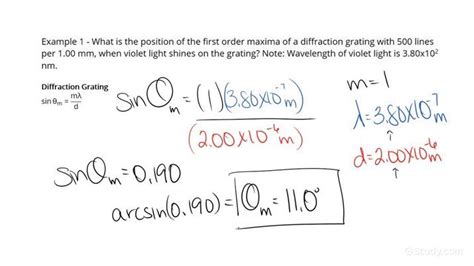 Example 1 - What is the position of the first order maxima of a diffraction grating with 500 lines
per 1.00 mm, when violet light shines on the grating? Note: Wavelength of violet light is 3.80x10²
nm.
Diffraction Grating
sin θm = mλ/d
sinθm = (1)(3.80x10⁻⁷m)/(2.00x10⁻⁶m)
m=1
λ=3.80x10⁻⁷m
d=2.00x10⁻⁶m
sinθm=0.190
arcsin(0.190) = θm = 11.0°
Study.com